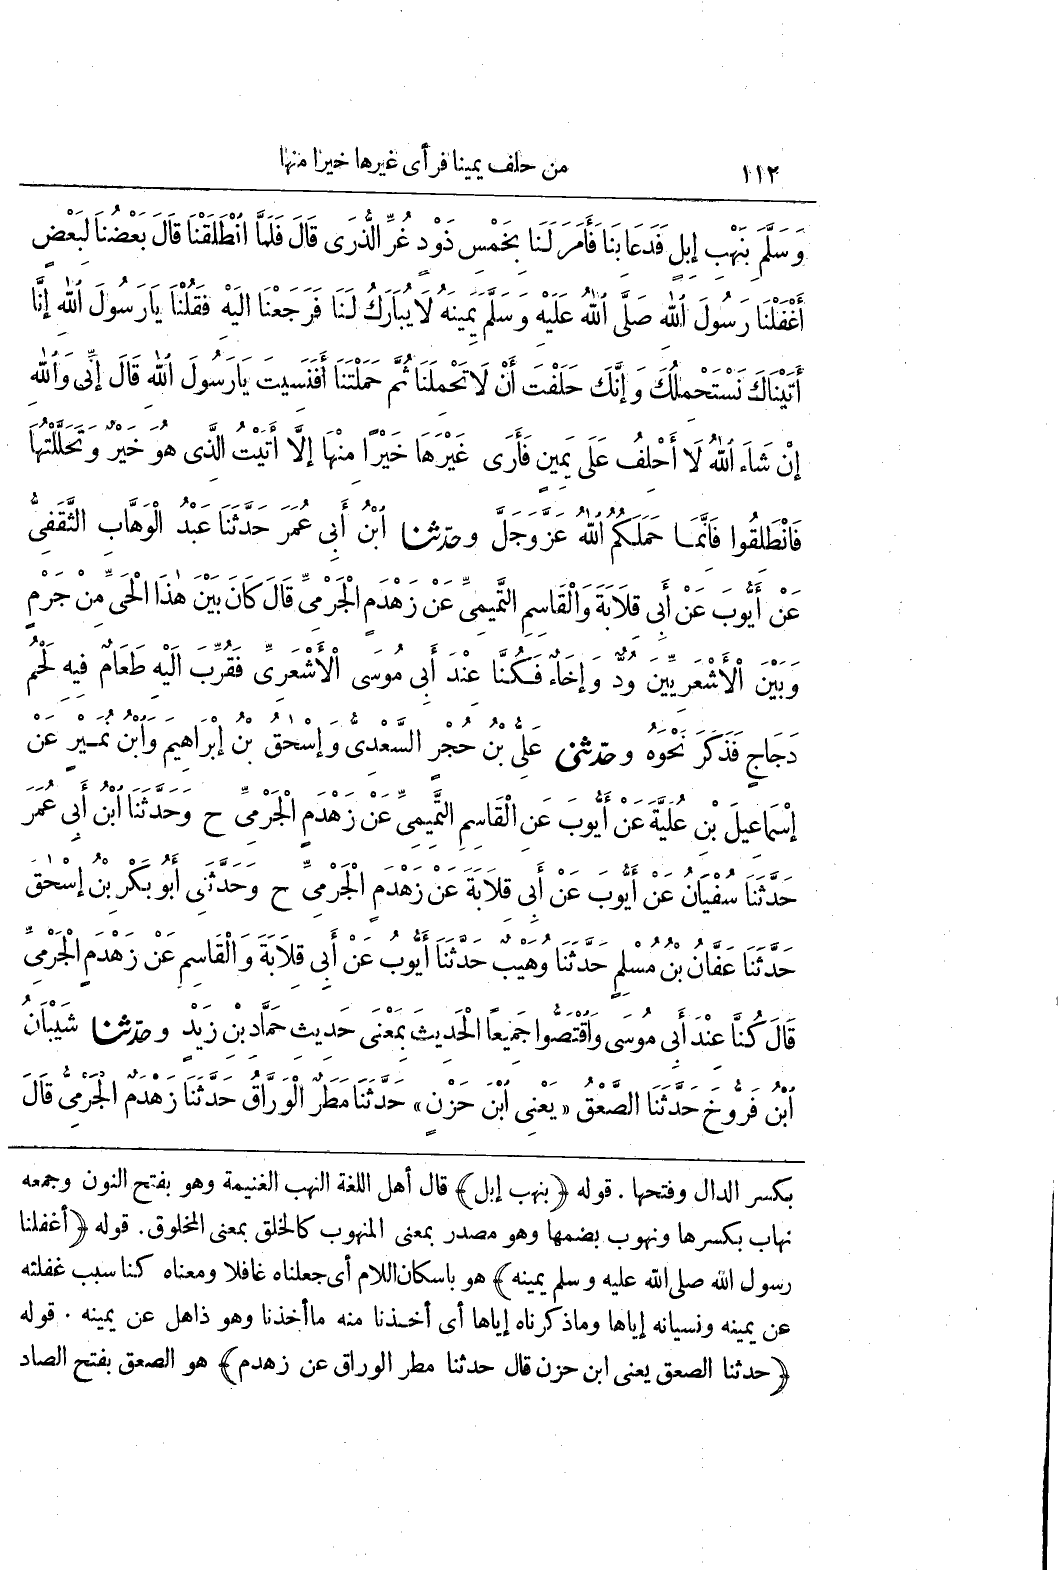 ١١٢ من حلف يمينا فرأى غيرها خيرا منها
وَسَلَّمَ بِنَهْبِ إِبِلٍ فَدَعَا بِنَا فَأَمَرَ لَنَا بِخَمْسِ ذَوْدٍ غُرِّ الذُّرَى قَالَ فَلَمَّا انْطَلَقْنَا قَالَ بَعْضُنَا لِبَعْضٍ
أَغْفَلْنَا رَسُولَ اللهِ صَلَّى اللهُ عَلَيْهِ وَسَلَّمَ يَمِينَهُ لَا يُبَارَكُ لَنَا فَرَجَعْنَا الَيْهِ فَقُلْنَا يَا رَسُولَ اللهِ إِنَّا
أَتَيْنَاكَ نَسْتَحْمِلُكَ وَإِنَّكَ حَلَفْتَ أَنْ لَا تَحْمِلَنَا ثُمَّ حَمَلْتَنَا أَفَنَسِيتَ يَا رَسُولَ اللهِ قَالَ إِنِّي وَاللهِ
إِنْ شَاءَ اللهُ لَا أَحْلِفُ عَلَى يَمِينٍ فَأَرَى غَيْرَهَا خَيْرًا مِنْهَا إِلَّا أَتَيْتُ الَّذِى هُوَ خَيْرٌ وَتَحَلَّلْتُهَا
فَانْطَلِقُوا فَانَّمَا حَمَلَكُمُ اللهُ عَزَّ وَجَلَّ وحَدَّثَنَا ابْنُ أَبِي عُمَرَ حَدَّثَنَا عَبْدُ الْوَهَّابِ الثَّقَفِيُّ
عَنْ أَيُّوبَ عَنْ أَبِي قِلَابَةَ وَالْقَاسِمِ التَّمِيمِيِّ عَنْ زَهْدَمٍ الْجَرْمِيِّ قَالَ كَانَ بَيْنَ هٰذَا الْحَيِّ مِنْ جَرْمٍ
وَبَيْنَ الْأَشْعَرِيِّينَ وُدٌّ وَإِخَاءٌ فَكُنَّا عِنْدَ أَبِي مُوسَى الْأَشْعَرِيِّ فَقُرِّبَ الَيْهِ طَعَامٌ فِيهِ لَحْمُ
دَجَاجٍ فَذَكَرَ نَحْوَهُ وحَدَّثَنِي عَلِيُّ بْنُ حُجْرٍ السَّعْدِيُّ وَإِسْحٰقُ بْنُ إِبْرَاهِيمَ وَابْنُ نُمَيْرٍ عَنْ
إِسْمَاعِيلَ بْنِ عُلَيَّةَ عَنْ أَيُّوبَ عَنِ الْقَاسِمِ التَّمِيمِيِّ عَنْ زَهْدَمٍ الْجَرْمِيِّ ح وَحَدَّثَنَا ابْنُ أَبِي عُمَرَ
حَدَّثَنَا سُفْيَانُ عَنْ أَيُّوبَ عَنْ أَبِي قِلَابَةَ عَنْ زَهْدَمٍ الْجَرْمِيِّ ح وَحَدَّثَنِي أَبُو بَكْرِ بْنُ إِسْحٰقَ
حَدَّثَنَا عَفَّانُ بْنُ مُسْلِمٍ حَدَّثَنَا وُهَيْبٌ حَدَّثَنَا أَيُّوبُ عَنْ أَبِي قِلَابَةَ وَالْقَاسِمِ عَنْ زَهْدَمٍ الْجَرْمِيِّ
قَالَ كُنَّا عِنْدَ أَبِي مُوسَى وَاقْتَصُّوا جَمِيعًا الْحَدِيثَ بِمَعْنَى حَدِيثِ حَمَّادِ بْنِ زَيْدٍ وحَدَّثَنَا شَيْبَانُ
ابْنُ فَرُّوخَ حَدَّثَنَا الصَّعْقُ «يَعْنِي ابْنَ حَزْنٍ» حَدَّثَنَا مَطَرٌ الْوَرَّاقُ حَدَّثَنَا زَهْدَمٌ الْجَرْمِيُّ قَالَ
بكسر الدال وفتحها. قوله ﴿بنهب إبل﴾ قال أهل اللغة النهب الغنيمة وهو بفتح النون وجمعه
نهاب بكسرها ونهوب بضمها وهو مصدر بمعنى المنهوب كالخلق بمعنى المخلوق. قوله ﴿أغفلنا
رسول الله صلى الله عليه وسلم يمينه﴾ هو باسكان اللام أى جعلناه غافلا ومعناه كنا سبب غفلته
عن يمينه ونسيانه إياها وماذكرناه إياها أى أخذنا منه ماأخذنا وهو ذاهل عن يمينه. قوله
﴿حدثنا الصعق يعنى ابن حزن قال حدثنا مطر الوراق عن زهدم﴾ هو الصعق بفتح الصاد